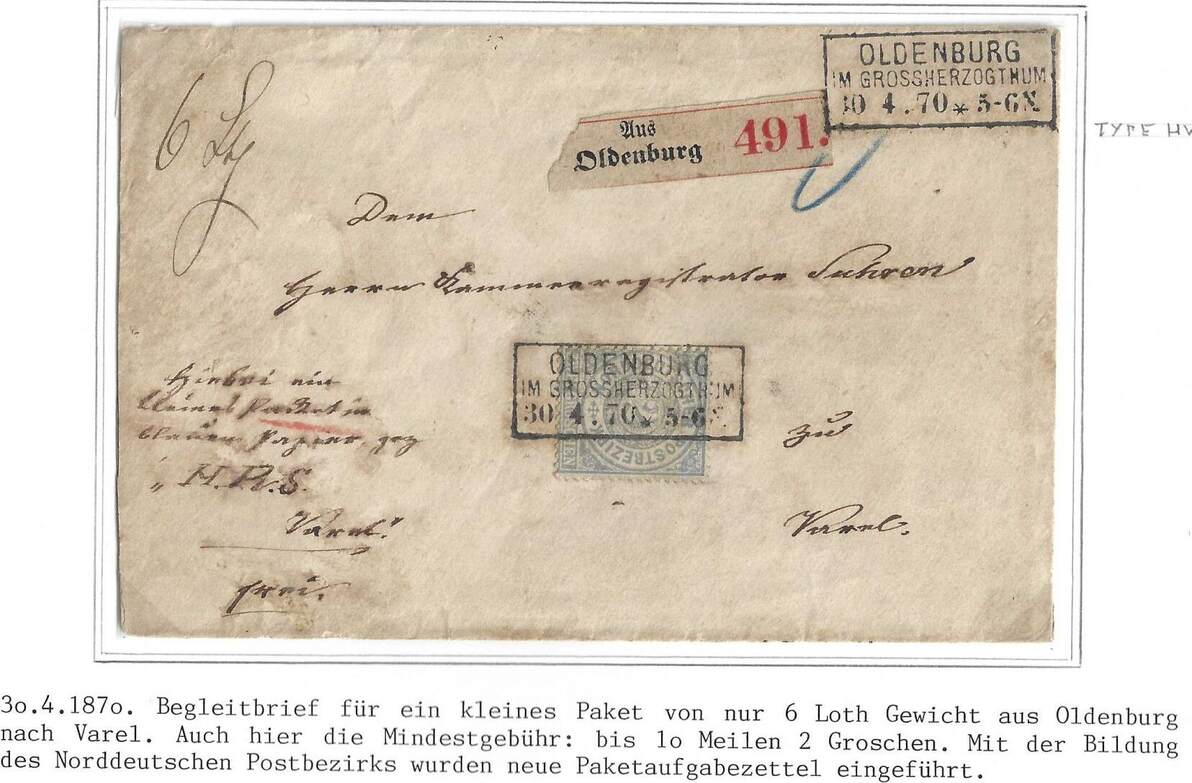 OLDENBURG
IM GROSSHERZOGTHUM
30 4.70 * 5-6N
TYPE HV
Aus
Oldenburg 491.
6 Lth
Dem
Herrn Kammerregistrator Suhren
OLDENBURG
IM GROSSHERZOGTHUM
30 4.70 * 5-6N
POSTBEZI
Hiebei ein
kleines Packet in
blauem Papier, gez
„H. R. S.
Varel."
frei.
zu
Varel.
3o.4.187o. Begleitbrief für ein kleines Paket von nur 6 Loth Gewicht aus Oldenburg
nach Varel. Auch hier die Mindestgebühr: bis 1o Meilen 2 Groschen. Mit der Bildung
des Norddeutschen Postbezirks wurden neue Paketaufgabezettel eingeführt.